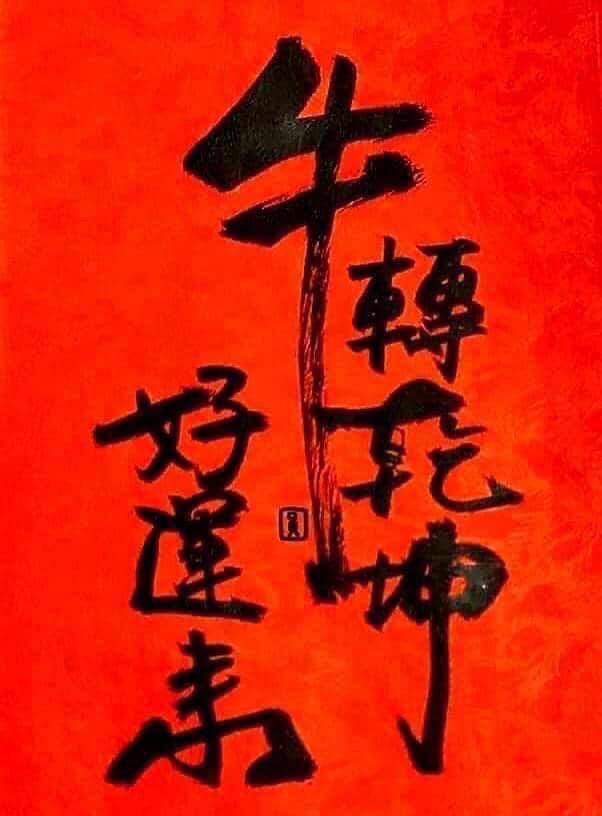 牛轉乾坤
好運來